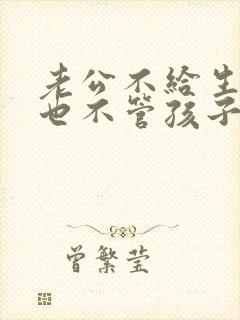 老公不给生
也不管孩子
曾繁莹